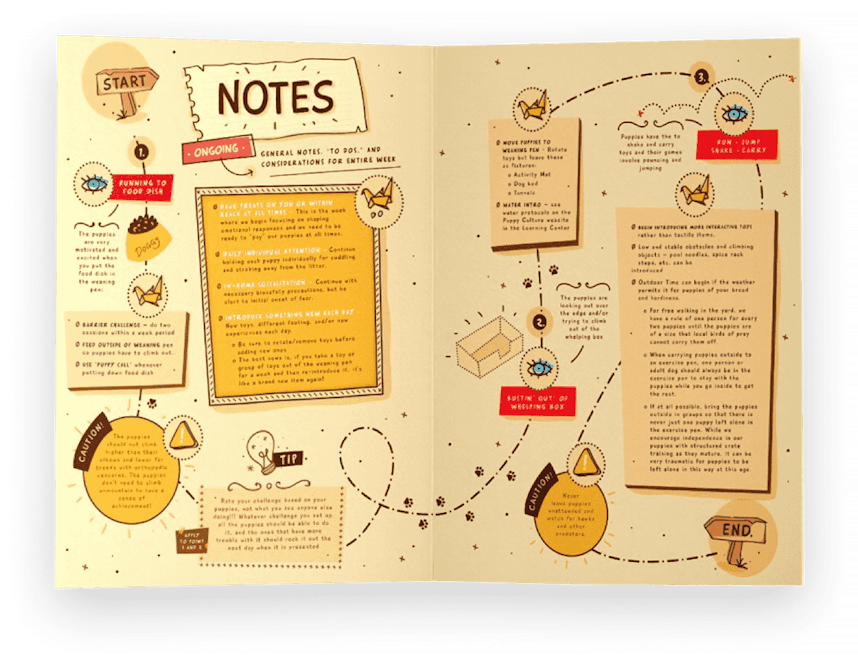 START
NOTES
ONGOING
GENERAL NOTES, "TO DOS," AND
CONSIDERATIONS FOR ENTIRE WEEK
1.
RUNNING TO
FOOD DISH
The puppies
are very
motivated and
excited when
you put the
food dish in
the weaning
pen.
DOGGY
BARRIER CHALLENGE – do two
sessions within a week period
FEED OUTSIDE OF WEANING pen
so puppies have to climb out.
USE "PUPPY CALL" whenever
putting down food dish
DO
HAVE TREATS ON YOU OR WITHIN
REACH AT ALL TIMES – This is the week
where we begin focusing on shaping
emotional responses and we need to be
ready to "pay" our puppies at all times.
DAILY INDIVIDUAL ATTENTION – Continue
holding each puppy individually for cuddling
and stroking away from the litter.
IN-HOME SOCIALIZATION – Continue with
necessary biosafety precautions, but be
alert to initial onset of fear.
INTRODUCE SOMETHING NEW EACH DAY
New toys, different footing, and/or new
experiences each day.
Be sure to rotate/remove toys before
adding new ones
The best news is, if you take a toy or
group of toys out of the weaning pen
for a week and then re-introduce it, it's
like a brand new item again!
CAUTION!
The puppies
should not climb
higher than their
elbows and lower for
breeds with orthopedic
concerns. The puppies
don't need to climb
a mountain to have a
sense of
achievement!
TIP
Rate your challenge based on your
puppies, not what you see anyone else
doing!!! Whatever challenge you set up,
all the puppies should be able to do
it, and the ones that have more
trouble with it should rock it out the
next day when it is presented.
APPLY
TO POINT
1 AND 2
MOVE PUPPIES TO
WEANING PEN – Rotate
toys but leave these
as fixtures:
Activity Mat
Dog bed
Tunnels
WATER INTRO – use
water protocols on the
Puppy Culture website
in the Learning Center
2.
The puppies are
looking out over
the edge and/or
trying to climb
out of the
whelping box
BUSTIN' OUT OF
WHELPING BOX
CAUTION!
Never
leave puppies
unattended and
watch for hawks
and other
predators.
3.
Puppies have the to
shake and carry
toys and their games
involve pouncing and
jumping
RUN - JUMP
SHAKE - CARRY
BEGIN INTRODUCING MORE INTERACTIVE TOYS
rather than tactile items.
Low and stable obstacles and climbing
objects – pool noodles, spice rack
steps, etc. can be
introduced
Outdoor Time can begin if the weather
permits it for puppies of your breed
and hardiness.
For free walking in the yard, we
have a rule of one person for every
two puppies until the puppies are
of a size that local birds of prey
cannot carry them off.
When carrying puppies outside to
an exercise pen, one person or
adult dog should always be in the
exercise pen to stay with the
puppies while you go inside to get
the rest.
If at all possible, bring the puppies
outside in groups so that there is
never just one puppy left alone in
the exercise pen. While we
encourage independence in our
puppies with structured crate
training as they mature, it can be
very traumatic for puppies to be
left alone in this way at this age.
END.